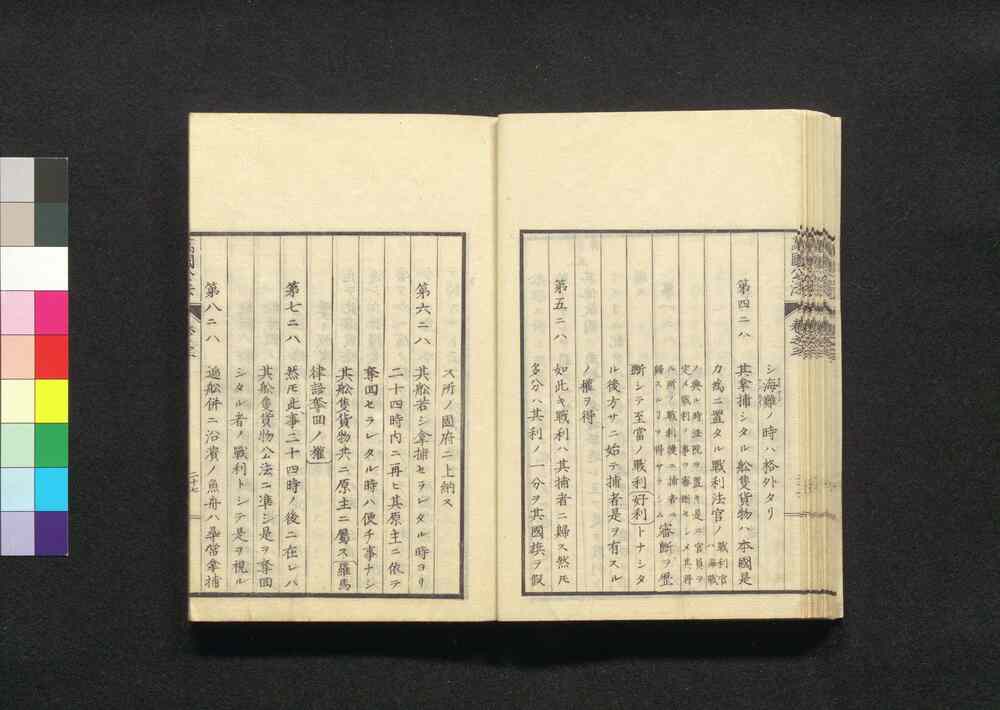 シ海賊ノ時ハ格外タリ
第四ニハ　其拿捕シタル舩隻貨物ハ本國是
カ為ニ置タル戦利法官ノ
ル所ノ戦利
審断ヲ歴
断シテ至當ノ戦利好利トナシタ
ル後方サニ始テ捕者是ヲ有スル
ノ權ヲ得
第五ニハ　如此キ戦利ハ其捕者ニ歸ス然𪜈
多分ハ其利ノ一分ヲ其國旗ヲ假
ス所ノ國府ニ上納ス
第六ニハ　其舩若シ拿捕セラレタル時ヨリ
二十四時内ニ再ヒ其原主ニ依テ
奪回セラレタル時ハ便チ事ナシ
其舩隻貨物共ニ原主ニ屬ス羅馬
律語奪回ノ權
第七ニハ　然𪜈此事二十四時ノ後ニ在レハ
其舩隻貨物公法ニ準シ是ヲ奪回
シタル者ノ戦利トシテ是ヲ視ル
第八ニハ　過舩併ニ沿濱ノ魚舟ハ尋常拿捕
萬國公法
二十七